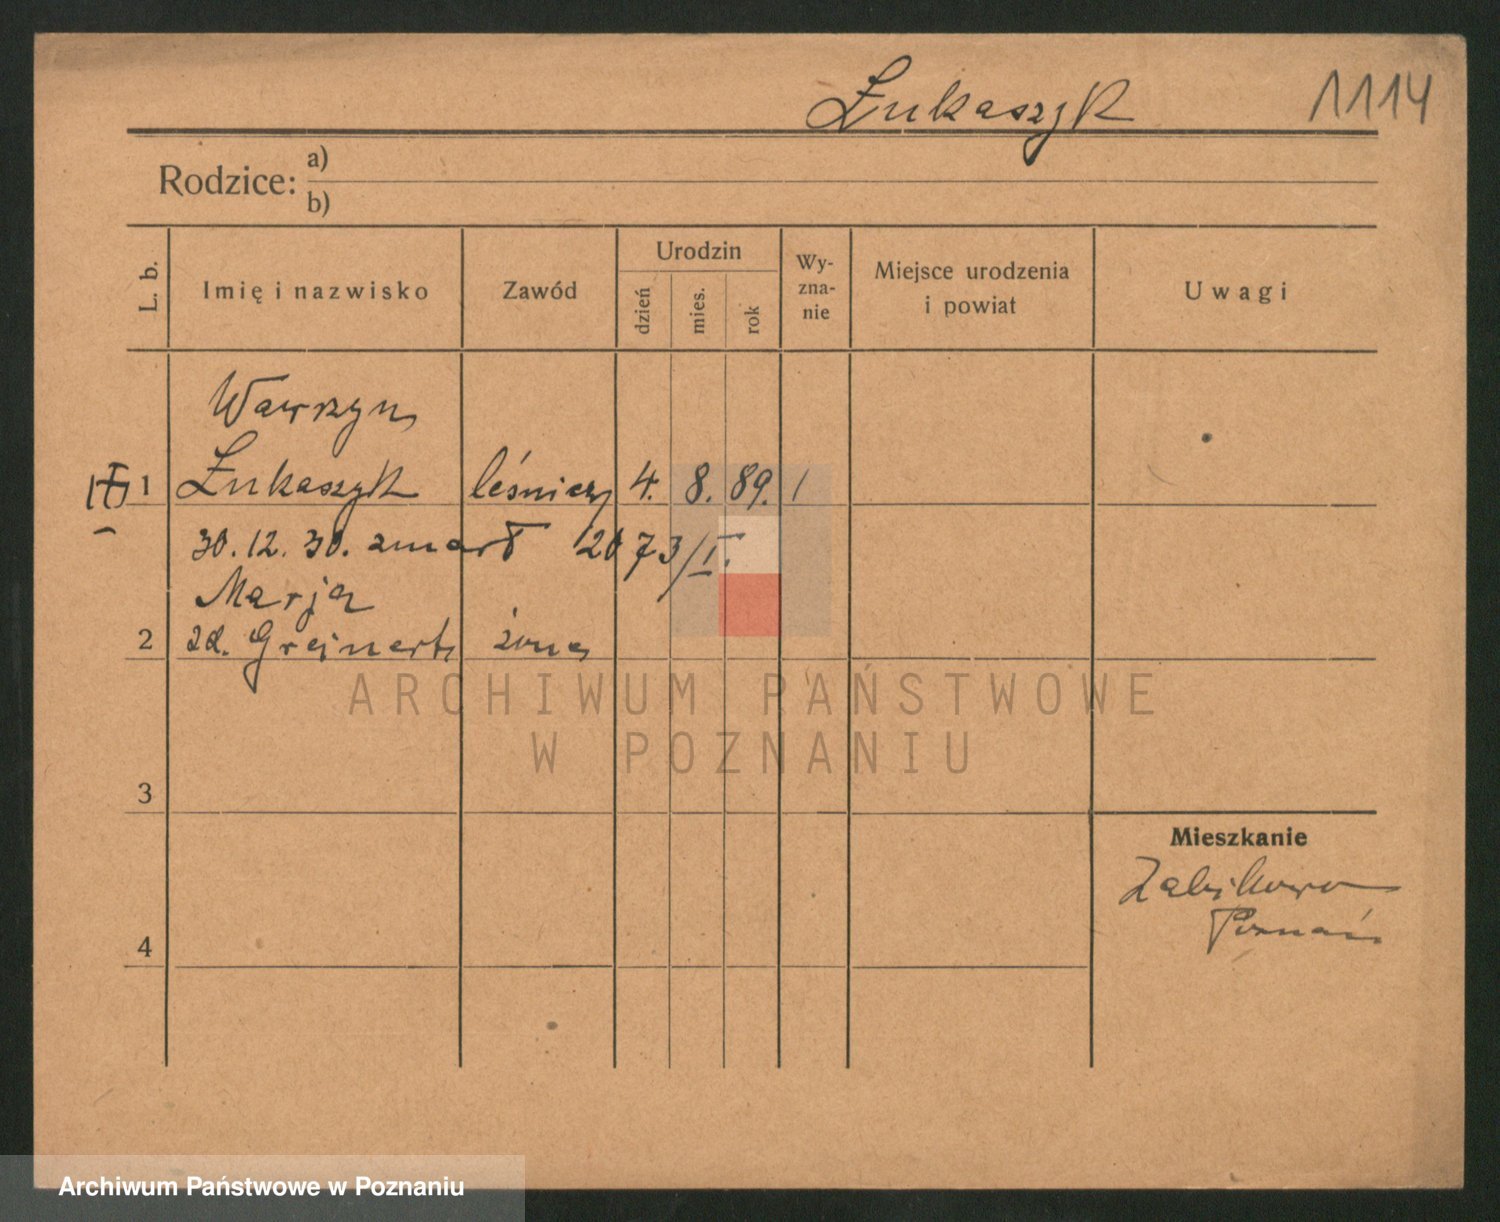 Łukaszyk 1114
Rodzice: a)
b)
L. b.
Imię i nazwisko
Zawód
Urodzin
dzień
mies.
rok
Wy-
zna-
nie
Miejsce urodzenia
i powiat
Uwagi
Wawrzyn
1 Łukaszyk leśniczy 4. 8. 89. 1
30. 12. 30. zmarł 2073/I.
Marja
2 zd. Grejnert żona
3
4
Mieszkanie
Żabikowo
Poznań
ARCHIWUM PAŃSTWOWE
W POZNANIU
Archiwum Państwowe w Poznaniu